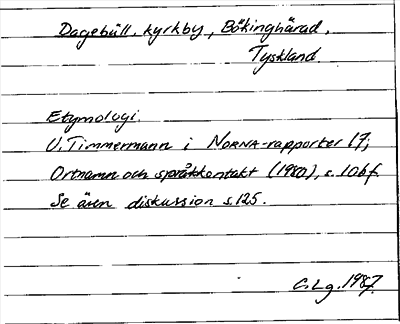 Dagebüll. kyrkby, Bökinghärad,
Tyskland.
Etymologi.
U. Timmermann i NORNA-rapporter 17;
Ortnamn och språkkontakt (1980), s. 106f.
Se även diskussion s.125.
C.Lg. 1987.